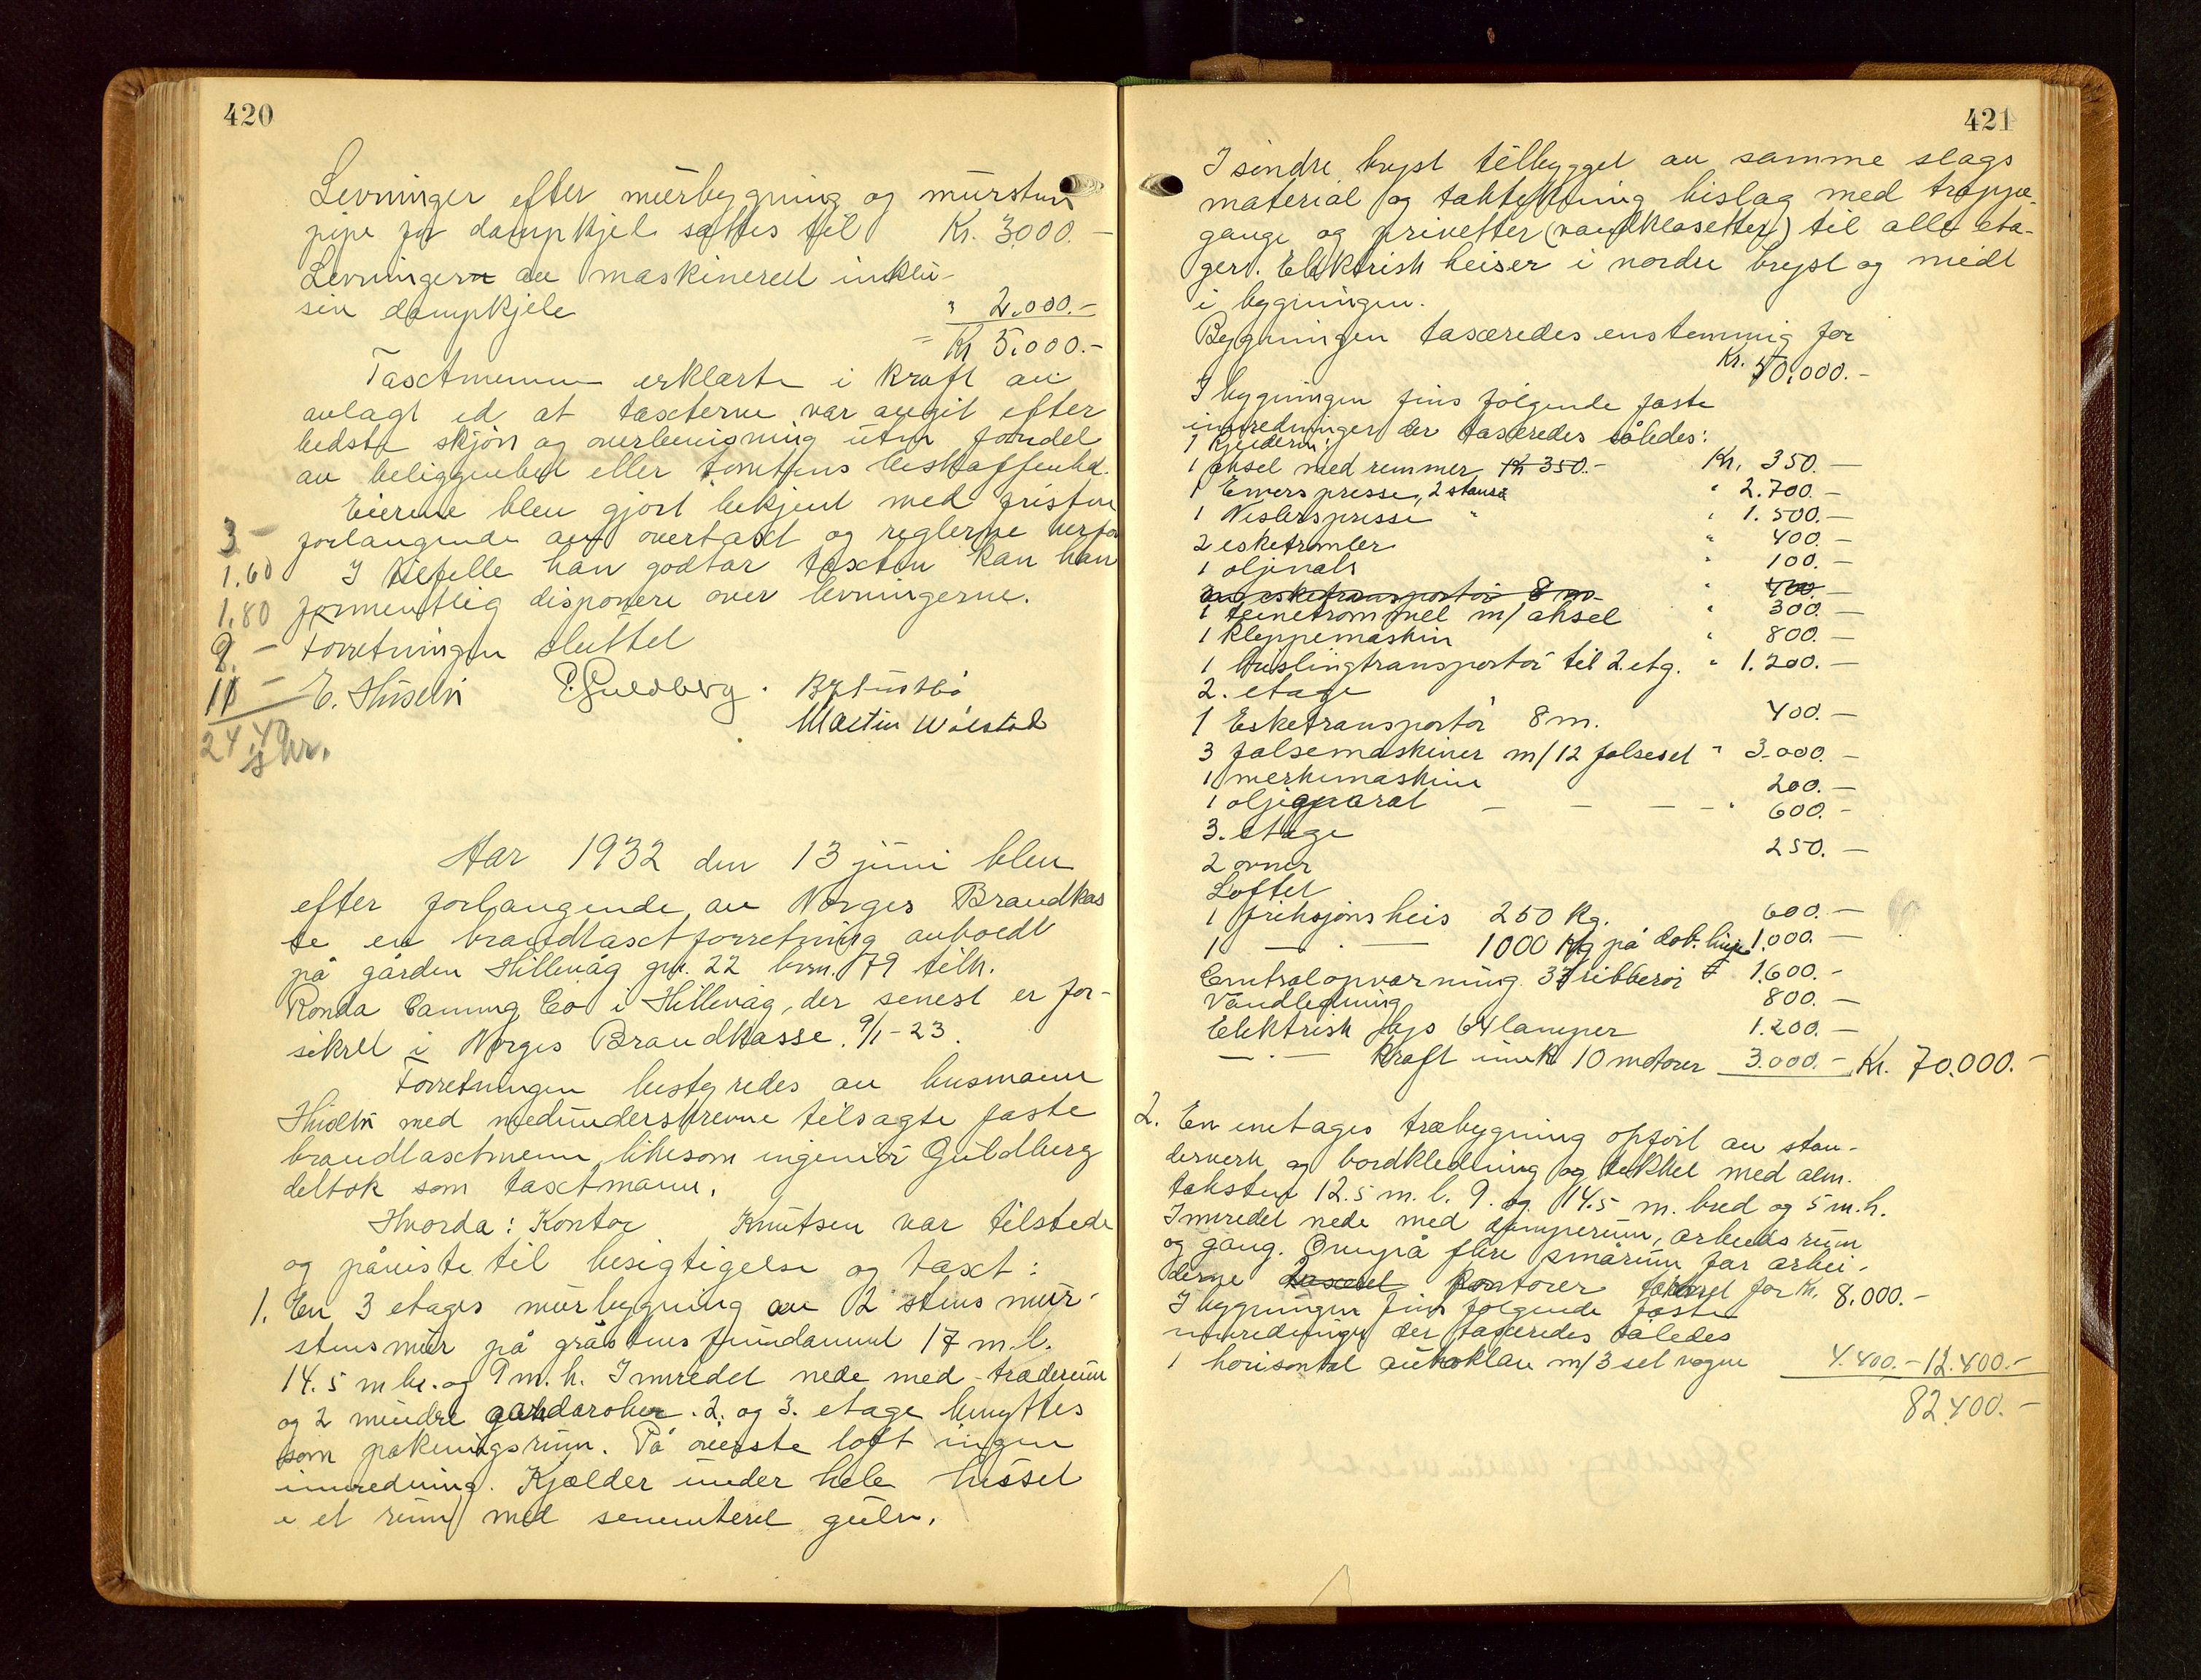 420
Levninger efter murbygning og mursten
pipe for dampkjel sattes til Kr. 3.000.-
Levningern av maskineriell inklu-
siv dampkjele " 2.000.-
= Kr 5.000.-
Taxtmennene erklærte i kraft av
avlagt ed at taxterne var avgit efter
bedste skjøn og overbevisning uten fordel
av beliggenhet eller tomtens beskaffenhet.
Eierene blev gjort bekjent med fristen
forlangende av overtaxt og reglerne herfor
I tilfelle han godtar taxten kan han
formentlig disponere over levningerne.
Forretningen sluttet
E. Huseby P. Guldberg.
Martin Wølstad
3 -
1.60
1.80
8. -
11 -
24.40
Aar 1932 den 13 juni blev
efter forlangende av Norges Brandkas
se en brandtaxtforretning avholdt
på gården Hillevåg gnr. 22 brn. 79 tilh.
Ronda Caning Co i Hillevåg, der senest er for-
sikret i Norges Brandkasse. 9/1-23.
Forretningen bestyredes av husmann
med medunderskrevne tilsagte faste
brandtaxtmenn, likesom ingeniør Guldberg
deltok som taxtmann.
Hvorda: Kontor Knutsen var tilstede
og påviste til besigtigelse og taxt:
1. En 3 etages murbygning av 2 stens mur-
stensmur på gråstens fundament 17 m.l.
14.5 m br. og 9 m.h. Innredet nede med træderum
og 2 mindre gardarober. 2. og 3. etage benyttes
som pakningsrum. På øverste loft ingen
innredning. Kjælder under hele huset
i et rum med sementeret gulv.
421
I søndre bryst tilbygget av samme slags
material og taktekning bislag med trappe-
gange og privetter (vandklosetter) til alle eta-
ger. Elektrisk heiser i nordre bryst og midt
i bygningen.
Bygningen taxeredes enstemmig for
Kr. 50.000.-
I bygningen fins følgende faste
innredninger der taxeredes således:
1 Kjelderen:
1 aksel med remmer Kr 350.- Kr. 350.-
1 Ewerspresse, 2 stansa " 2.700.-
1 Neslerspresse " " 1.500.-
2 esketromler " 400.-
1 oljevals " 100.-
esketransportør 8 m. " 400.-
1 teinetrommel m/ aksel " 300.-
1 Kleppemaskin " 800.-
1 buslingtransportør til 2. etg. " 1.200.-
2. etage
1 Esketransportør 8 m. 400.-
3 falsemaskiner m/12 falseset " 3.000.-
1 merkemaskin 200.-
1 oljeaparat - - - - " 600.-
3. etage
2 ovner 250.-
Loftet
1 friksjons heis 250 kg. 600.-
1 - . - 1000 kg på dob. linje 1.000.-
Centralopvarming 37 ribberør 1.600.-
Vandledning 800.-
Elektrisk lys 64 lamper 1.200.-
- . - kraft innk 10 motorer 3.000.- Kr. 70.000.-
2. En enetages træbygning opført av stan-
derverk og bordkledning og tekket med alm.
taksten 12.5 m. l. 9. og 14.5 m. bred og 5 m.h.
Innredet nede med damperum, arbeids rum
og gang. Ovenpå flere smårum for arbei-
derne taxeret kontorer taxeret for Kr. 8.000.-
I bygningen fins følgende faste
innredninger der taxeredes således
1 horisontal autoklav m/3 set vogne 4.400.- 12.400.-
82.400.-